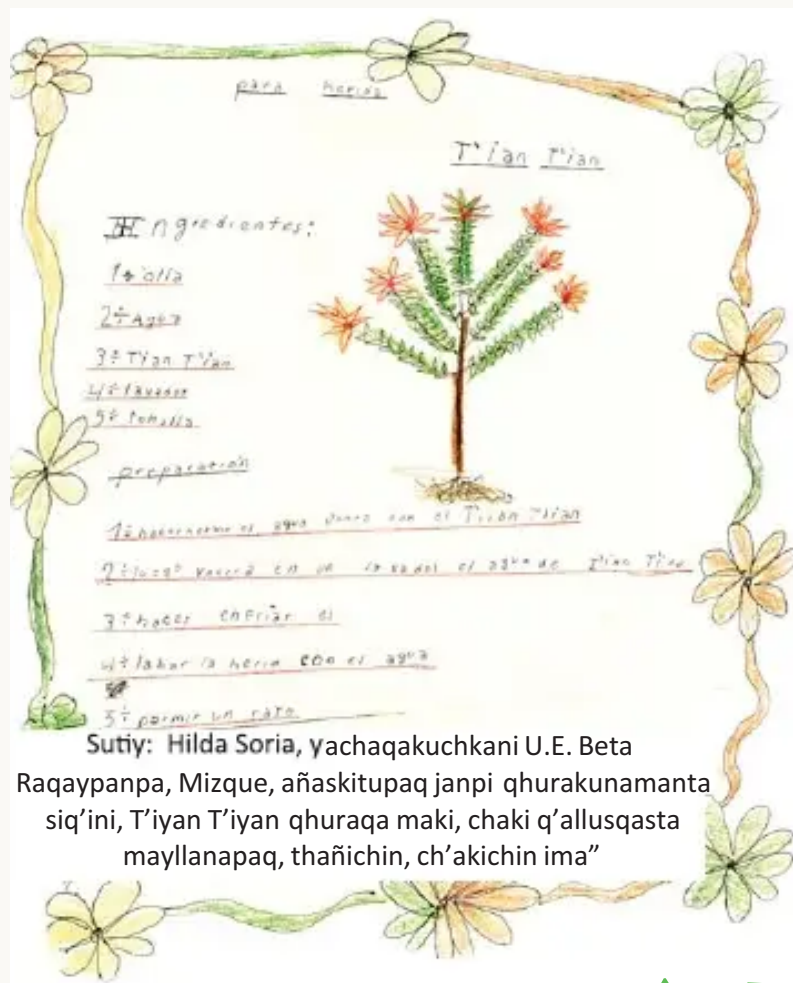 para herida
T'ian T'ian
Ingredientes:
1 olla
2÷ Agua
3÷ T'ian T'ian
4÷ lavador
5÷ tohalla
preparación
1÷ el agua con el T'ian
2÷ luego en un lavador el agua de T'ian T'ian
3÷ hacer enfriar el
4÷ labar la heria con el agua
5÷ un rato
Sutiy: Hilda Soria, yachaqakuchkani U.E. Beta
Raqaypanpa, Mizque, añaskitupaq janpi qhurakunamanta
siq'ini, T'iyan T'iyan qhuraqa maki, chaki q'allusqasta
mayllanapaq, thañichin, ch'akichin ima”